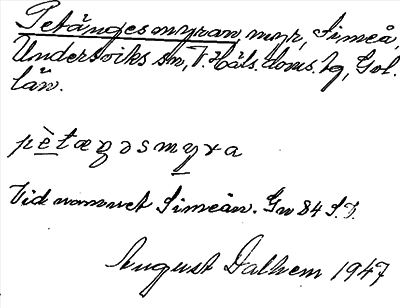 Petängesmyran, myr, Simeå,
Undersviks sn, V. Häls. doms. hg, Gvl.
län.
pètæŋəsmyra
Vid vannet Simeån. Gv 84 S.T.
August Dalhem 1947